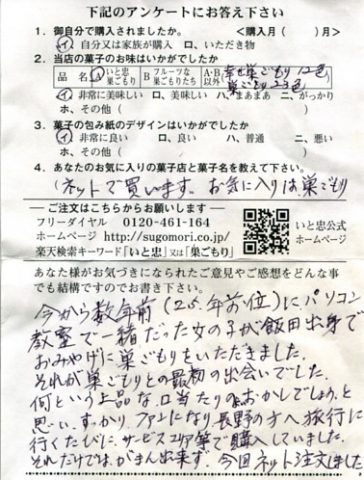 下記のアンケートにお答え下さい
1. 御自分で購入されましたか。 <購入月( )月>
イ、自分又は家族が購入 ロ、いただき物
2. 当店の菓子のお味はいかがでしたか
品名 A いと忠巣ごもり B フルーツな巣ごもりたち A・B以外 幸せ巣ごもり 12色 巣ごもり 23ヶ
イ、非常に美味しい ロ、美味しい ハ、まあまあ ニ、がっかり
ホ、その他( )
3. 菓子の包み紙のデザインはいかがでしたか
イ、非常に良い ロ、良い ハ、普通 ニ、悪い
ホ、その他( )
4. あなたのお気に入りの菓子店と菓子名を教えて下さい。
(ネットで買います。お気に入りは、巣ごもり
―ご注文はこちらからお願いします―
フリーダイヤル 0120-461-164
ホームページ http://sugomori.co.jp/
楽天検索キーワード「いと忠」又は「巣ごもり」
いと忠公式
ホームページ
あなた様がお気づきになられたご意見やご感想をどんな事
でも結構ですのでお書き下さい。
今から数年前(25.年前位)にパソコン
教室で一緒だった女の子が飯田出身で
おみやげに巣ごもりをいただきました。
それが巣ごもりとの最初の出会いでした。
何という上品な、口当たりのおかしでしょう。と
思い、すっかり、ファンになり、長野の方へ旅行に
行くたびに、サービスエリア等で購入していました。
それだけでは、がまん出来ず、今回ネット注文しました